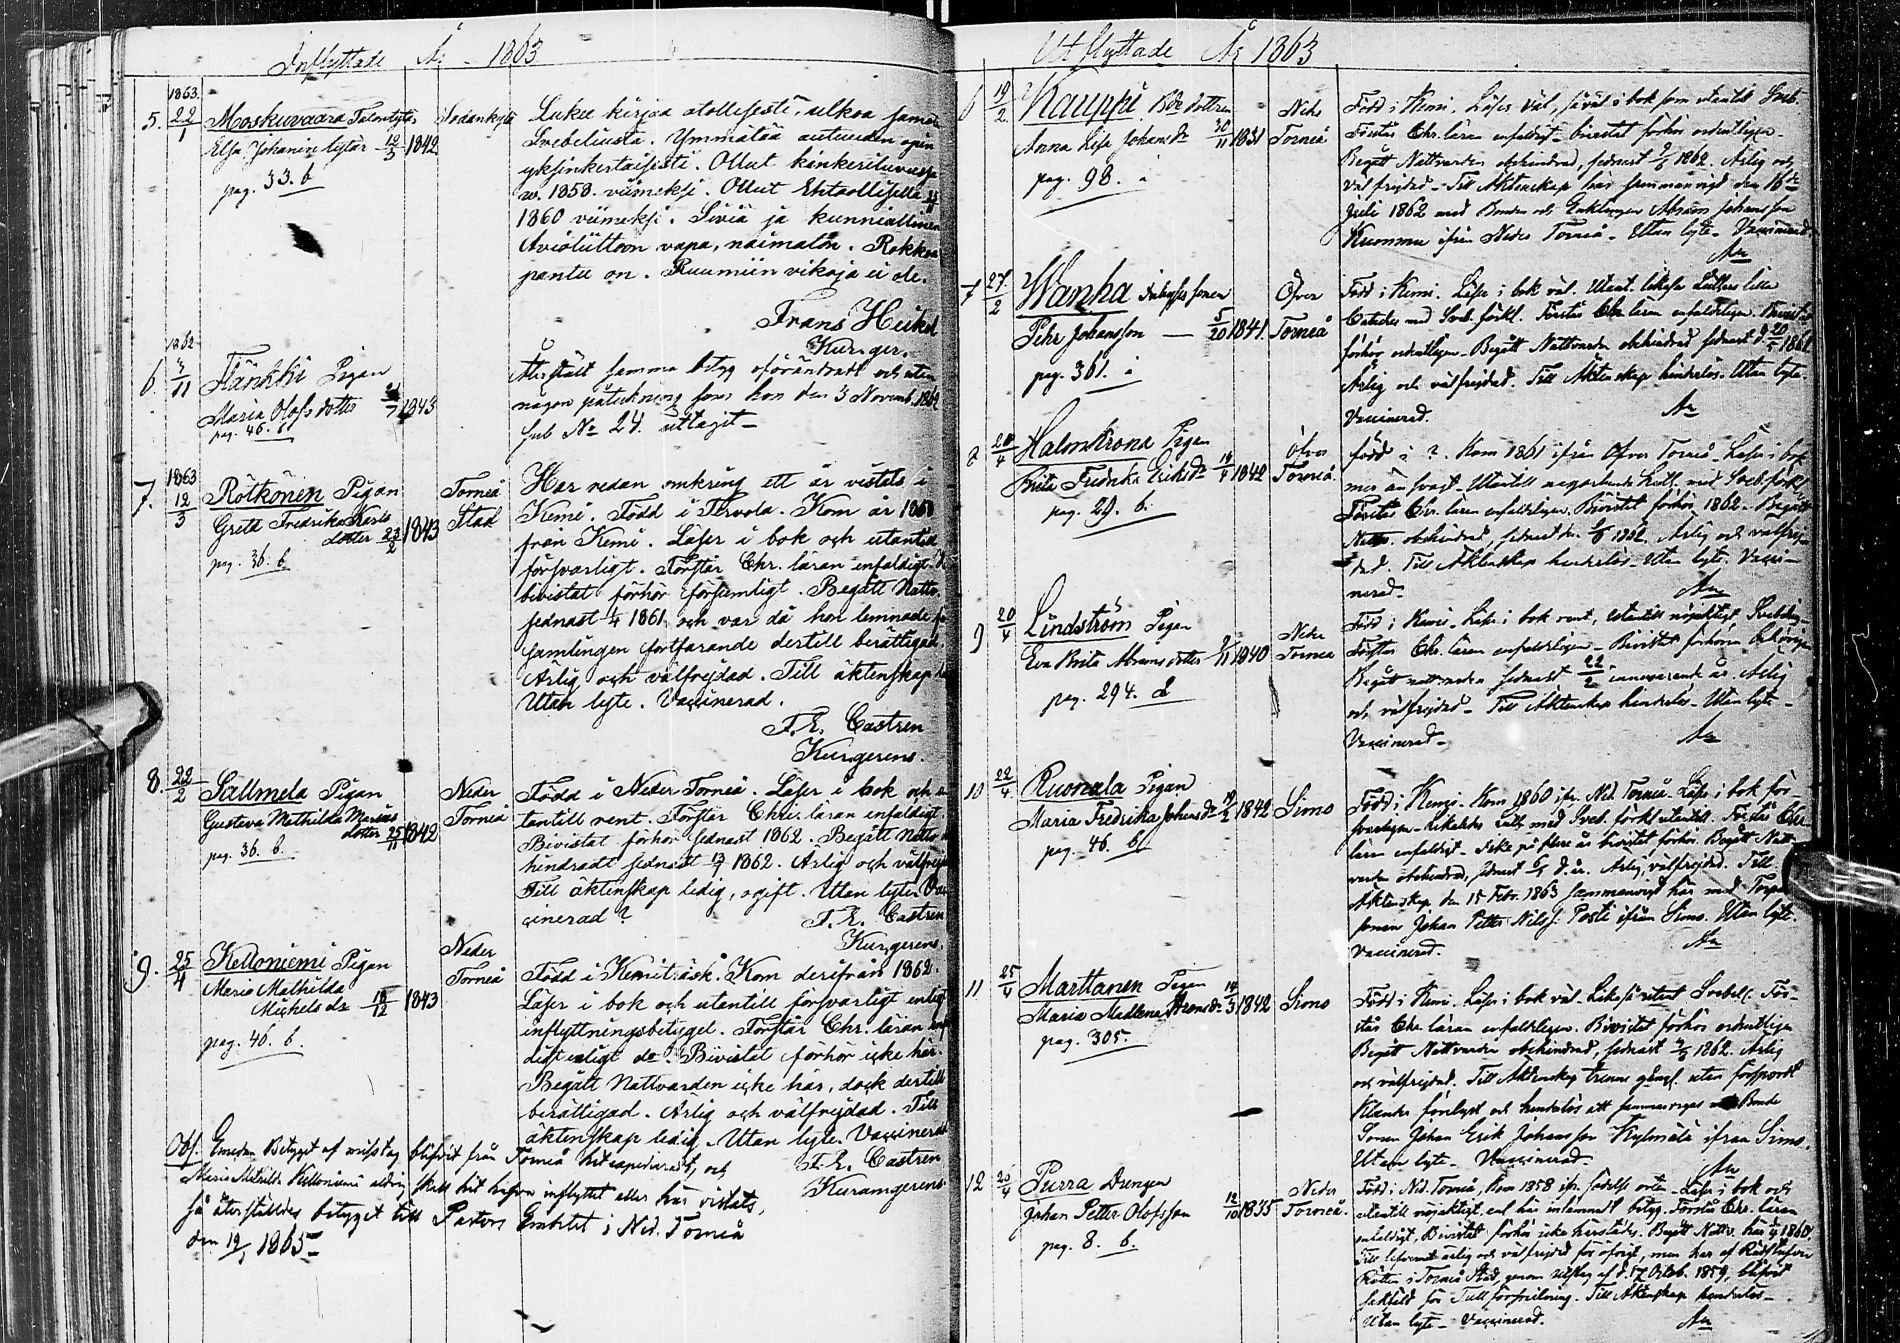 Inflyttade År 1863
1863.
5. 22/1 Moskuvaara Talontytär Sodankylä
Elsa Johanin tytär 12/3 1842
pag. 33. b
Lukee kirjaa
Svebeliusta. Ymmätää autuuden opin
yksinkertaisesti. Ollut kinkeriluvussa
w. 1858. viimeksi. Ollut Ehtoollisella
1860 viimeksi. Siviä ja kunniallinen
Avioliittoon vapa, naimatoin. Rokkoa
pantu on. Ruumiin vikoja ei ole.
Frans Heikel
Kur. ger.
1862
6. 3/11 Hänkki Pigan
Maria Olofsdotter 1843
pag. 46. b
Återstält samma betyg oförändradt och utan
någon påteckning som hon den 3 Novemb. 1862
sub No 24. uttagit
1863
7. 12/3 Rötkönen Pigan Torneå
Greta Fredrika Stad
dotter 22/2 1843
pag. 36. b
Har redan omkring ett år vistats i
Kemi. Född i Tervola. Kom år
från Kemi. Läser i bok och utantill
försvarligt. Förstår Chr. läran enfaldigt.
bivistat förhör oförsumligt. Begått Nattv.
sednast 1861 och var då hon lemnade
samlingen fortfarande dertill berättigad.
Ärlig och välfrejdad. Till äktenskap
Utan lyte. Vaccinerad.
F. E. Castren
Kur. gerens.
8. 22/2 Sallmela Pigan Neder
Gustava Mathilda Torneå
dotter 25/11 1842
pag. 36. b.
Född i Neder Torneå. Läser i bok och
tantill rent. Förstår Chr. läran enfaldigt
Bivistat förhör sednast 1862. Begått Nattv.
hindradt sednast 1862. Ärlig och välfrejd
Till äktenskap ledig, ogift. Utan lyte. Vac
cinerad?
F. E. Castren
Kur. gerens.
9. 25/4 Kelloniemi Pigan Neder
Maria Mathilda Torneå
Mickels dr 18/12 1843
pag. 46. b.
Född i Kemiträsk. Kom derifrån 1862.
Läser i bok och utantill försvarligt enligt
inflyttningsbetyget. Förstår Chr. läran
enligt do. Bivistat förhör icke här.
Begått Nattvarden icke här, dock dertill
berättigad. Ärlig och välfrejdad. Till
äktenskap ledig. Utan lyte. Vaccinerad
F. E. Castren
Kur. gerens
Obs. Emedan Betyget af misstag blifvit från Torneå hitexpedieradt, och
Maria Mathilda Kelloniemi aldrig inflyttat eller här vistats,
så återställdes betyget till Pastors Embetet i Ned. Torneå
den 1865
Utflyttade År 1863
6 19/2 Kauppi Bde dottren Neder
Anna Lisa Johansdr 30/11 1831 Torneå
pag. 98. i
Född i Kemi. Läser väl, såväl i bok som utantill Sveb.
Förstår Chr. läran enfaldigt. bivistat förhör ordentligen.
Begått Nattvarden obehindrad, sednast 1862. Ärlig och
välfrejdad. Till Äktenskap här sammanvigd den 16de
Juli 1862 med Bonden och Enklingen Abram Johansson
Kuomma ifrån Neder Torneå. Utan lyte. Vaccinerad.
7 27/2 Wanha Inhyses sonen Öfver
Pehr Johansson 5/20 1841. Torneå
pag. 361. i
Född i Kemi. Läser i bok väl. Utant. likaså Luthers lilla
Cateches med Sveb. förkl. Förstår Chr. läran enfaldigen. Bivistat
förhör ordentligen. Begått Nattvarden obehindrad sednast d. 1861.
Ärlig och välfrejdad. Till Äktenskap hinderlös. Utan lyte.
Vaccinerad.
8 20/4 Halmströna Pigan Öfver
Brita Fredrika Eriksdr 1842 Torneå.
pag. 29. b.
född i ? Kom 1861 ifrån Öfver Torneå. Läser i bok
Förstår Chr. läran enfaldigen. Bivistat förhör 1862. Begått
Nattv. obehindrad, sednast 1862. Ärlig och välfrej-
dad. Till Äktenskap hinderlös. Utan lyte. Vacci-
nerad.
9 20/4 Lindström Pigan Neder
Eva Brita Abramsdotter 2/11 1840 Torneå
pag. 294. 2
Född i Kemi. Läser i bok rent, utantill nöjaktigt
Förstår Chr. läran enfaldeligen. Bivistat förhören behörigen
Begått nattvarden sednast 22/2 innevarande år. Ärlig
och välfrejdad. Till Äktenskap hinderlös. Utan lyte.
Vaccinerad.
10 22/4. Ruonala Pigan
Maria Fredrika Johansdr 1842 Simo
pag. 46. b
Född i Kemi. Kom 1860 ifr. Ned. Torneå. Läser i bok för-
svarligen. Likaledes Luth. med Sveb. förkl. utantill. Förstår Chr.
läran enfaldigt. Icke på flere år bivistat förhör. Begått Natt-
varden obehindrad, sednast d. år. Ärlig, välfrejdad. Till
Äktenskap den 15 Febr. 1863 sammanvigd här med Torpare
sonen Johan Petter Nilss. Posti ifrån Simo. Utan lyte.
Vaccinerad.
11 25/4 Marttanen Pigan
Maria Madlena 1842 Simo
pag. 305.
Född i Kemi. Läser i bok väl. Likaså utant. Svebel. För-
står Chr. läran enfaldeligen. Bivistat förhör ordentligen
Begått Nattvarden obehindrad, sednast 1862. Ärlig
och välfrejdad. Till Äktenskap trenne gång. utan försport
klander förelyst och hinderlös att sammanvigas med Bonde
Sonen Johan Erik Johansson Kylmälä ifrån Simo.
Utan lyte. Vaccinerad.
12 Purra Drengen Neder
Johan Petter Olofsson 12/10 1835 Torneå.
pag. 8. b.
Född i Ned. Torneå, Kom 1858 ifr. födelse orten. Läser i bok och
utantill nöjaktigt, enl. här inlemnadt betyg. Förstår Chr. läran
enfaldigt. Bivistat förhör icke härstädes. Begått Nattv. här 1860.
Till lefvernet ärlig och välfrejdad för öfrigt, men har af Rådstufvu
Rätten i Torneå Stad, genom utslag af d. 17 Octob. 1859, blifvit
sakfäld för Tullförsnillning. Till Äktenskap hinderlös.
Utan lyte. Vaccinerad.